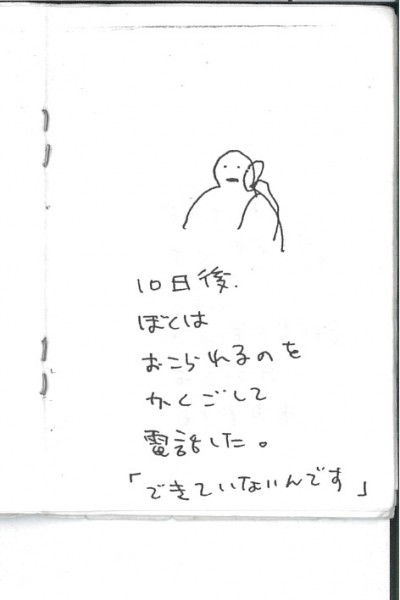 10日後.
ぼくは
おこられるのを
かくごして
電話した。
「できていないんです」